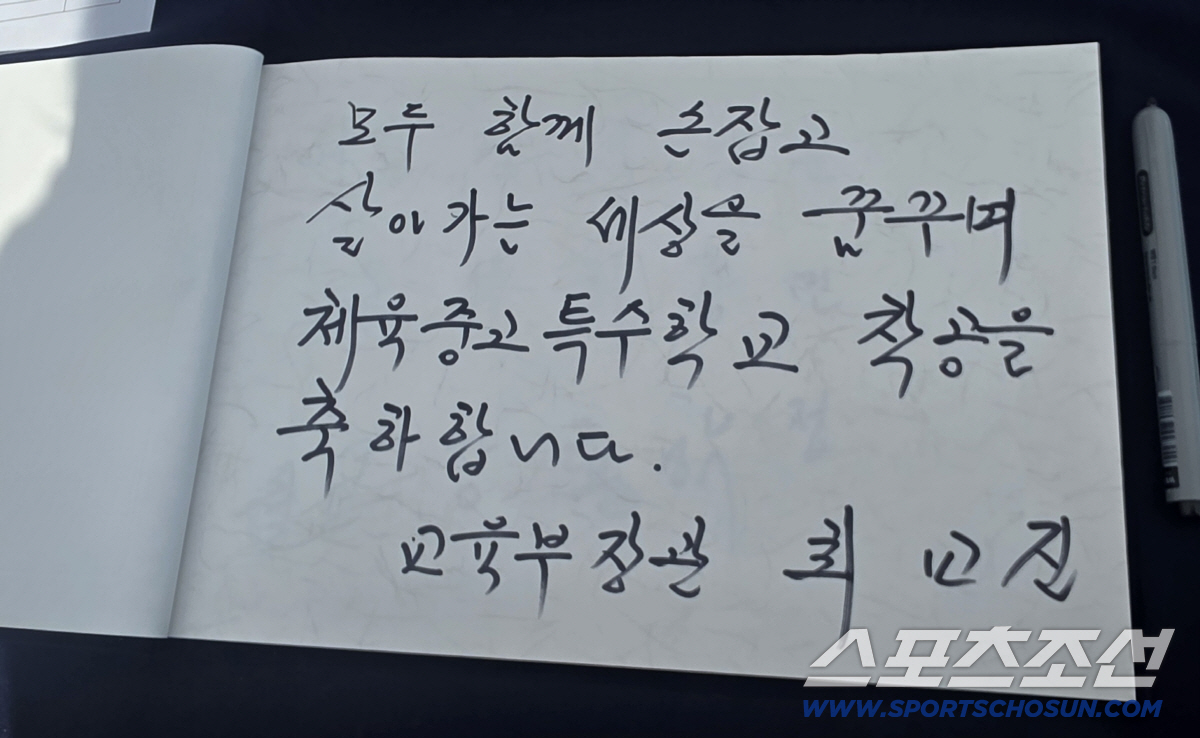 모두 함께 손잡고
살아가는 세상을 꿈꾸며
체육중고특수학교 착공을
축하합니다.
교육부장관 최교진
스포츠조선
WWW.SPORTSCHOSUN.COM